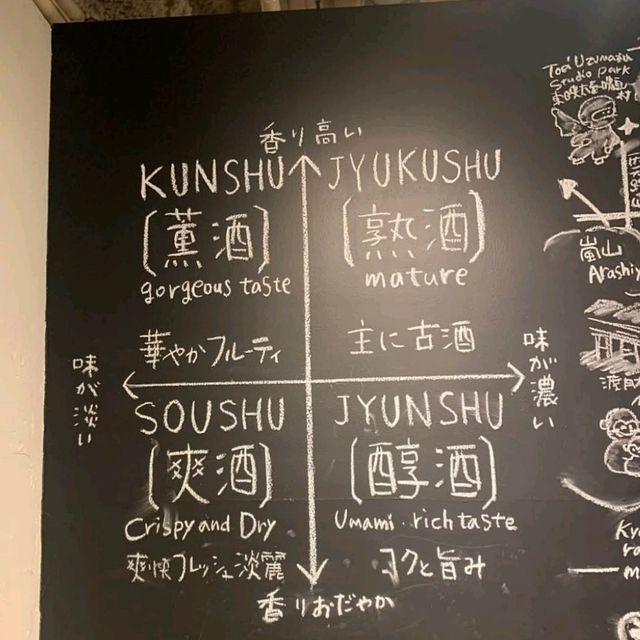 香り高い
KUNSHU
(薫酒)
gorgeous taste
華やかフルーティ
JYUKUSHU
(熟酒)
mature
主に古酒
味が淡い
味が濃い
SOUSHU
(爽酒)
Crispy and Dry
爽快フレッシュ淡麗
JYUNSHU
(醇酒)
Umami・rich taste
コクと旨み
香りおだやか
Toei Uzumasa
Studio park
東映太秦映画村
嵐山
Arashiy
渡月